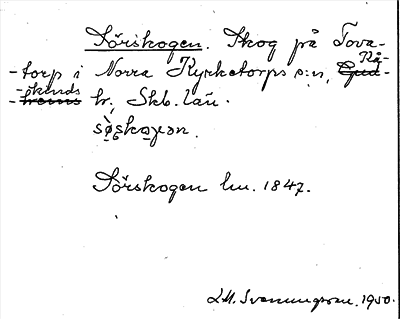 Sörskogen. Skog på Tova-
Kå-
-torp i Norra Kyrketorps s:n, Gud-
-kinds
-hems hr, Skb. län.
sö̀ʂkoɣən.
Sörskogen hu. 1847.
L.M. Svenungsson. 1950.